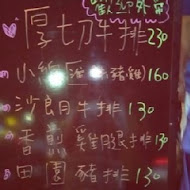 歡迎外帶
厚切牛排230
小統匯(牛豬雞)160
沙朗牛排 130
香煎雞腿排 130
田園豬排 130